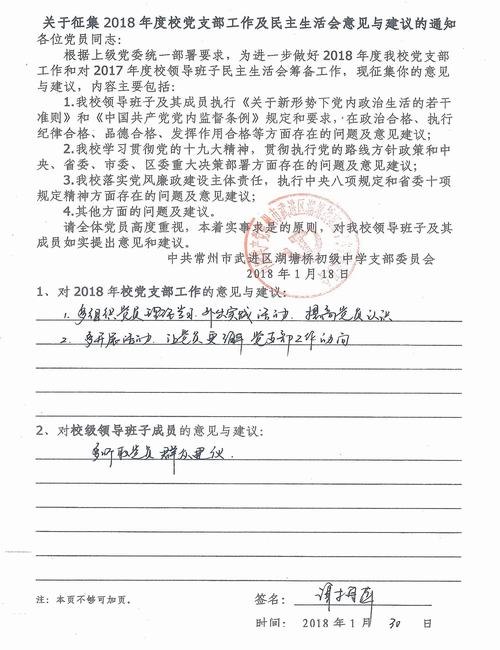 关于征集 2018 年度校党支部工作及民主生活会意见与建议的通知
各位党员同志：
根据上级党委统一部署要求，为进一步做好 2018 年度我校党支部
工作和对 2017 年度校领导班子民主生活会筹备工作，现征集你的意见
与建议，内容主要包括：
1.我校领导班子及其成员执行《关于新形势下党内政治生活的若干
准则》和《中国共产党党内监督条例》规定和要求，在政治合格、执行
纪律合格、品德合格、发挥作用合格等方面存在的问题及意见建议；
2.我校学习贯彻党的十九大精神，贯彻执行党的路线方针政策和中
央、省委、市委、区委重大决策部署方面存在的问题及意见建议；
3.我校落实党风廉政建设主体责任，执行中央八项规定和省委十项
规定精神方面存在的问题及意见建议；
4.其他方面的问题及建议。
请全体党员高度重视，本着实事求是的原则，对我校领导班子及其
成员如实提出意见和建议。
中共常州市武进区湖塘桥初级中学支部委员会
2018 年 1 月 18 日
1、对 2018 年校党支部工作的意见与建议：
1. 多组织党员理论学习 实践活动，提高党员认识
2. 多开展活动，让党员更 党支部工作动向
2、对校级领导班子成员的意见与建议：
多听取党员群众建议.
注：本页不够可加页。
签名：
时间： 2018 年 1 月 30 日